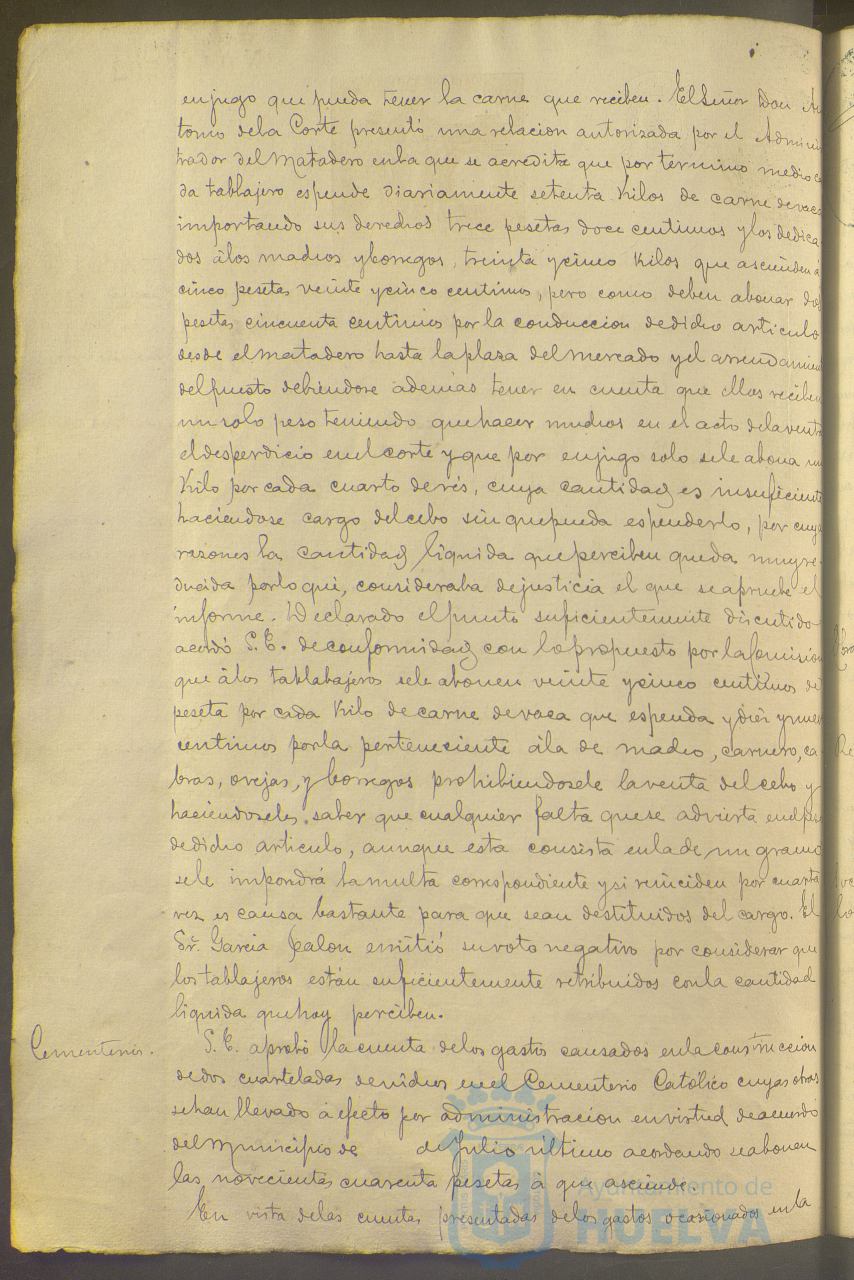 enjugo que pueda tener la carne que reciben. El Señor Don An
tonio dela Corte presentó una relacion autorizada por el Adminis
trador del Matadero enla que se acredita que por término medio ca
da tablajero espende diariamente setenta Kilos de carne devaca
importando sus derechos trece pesetas doce centimos ylos dedica-
dos álos machos yborregos, treinta ycinco Kilos que ascienden á
cinco pesetas veinte ycinco centimos, pero como deben abonar dos
pesetas cincuenta centimos porla conduccion dedicho articulo
desde elmatadero hasta laplaza delmercado yel arrendamien
delpuesto debiendose ademas tener en cuenta que ellos reciben
unsolo peso teniendo quehacer muchos en el acto delaventa
eldesperdicio enelcorte yque por enjugo solo sele abona un
Kilo porcada cuarto derés, cuya cantidad es insuficiente
haciendose cargo delcebo sin quepueda espenderlo, por cuya
razones la cantidad liquida queperciben queda muyre-
ducida porlo que, consideraba dejusticia el que seapruebe el
informe. Declarado elpunto suficientemente discutido
acordó S.E. deconformidad con lopropuesto porlaComision
que álos tablabajeros sele abonen veinte ycinco centimos de
peseta por cada Kilo decarne devaca que espenda ydiez ynuev
centimos porla perteneciente ála de macho, carnero, ca-
bras, ovejas, yborregos prohibiendosele laventa delcebo y
haciendoseles saber que cualquier falta quese advierta enelpeso
dedicho articulo, aunque esta consista enlade un gramo
sele impondrá lamulta correspondiente ysi reinciden por cuarta
vez es causa bastante para que sean destituidos del cargo. El
Sr. Garcia Jalon emitió suvoto negativo por considerar que
los tablajeros están suficientemente retribuidos conla cantidad
liquida quehoy perciben.
Cementerios. S.E. aprobó lacuenta delos gastos causados enla construccion
dedos cuarteladas denichos en el Cementerio Católico cuyas obras
sehan llevado á efecto por administracion envirtud deacuerdo
del Municipio de de Julio último acordando seabonen
las novecientas cuarenta pesetas á que asciende.
En vista delas cuentas presentadas delos gastos ocasionados enla
Ayuntamiento de
HUELVA